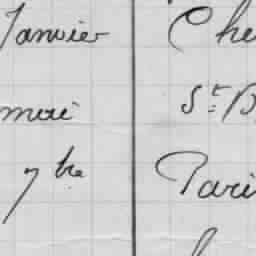 Janvier Che
mai St. B
7bre Pari